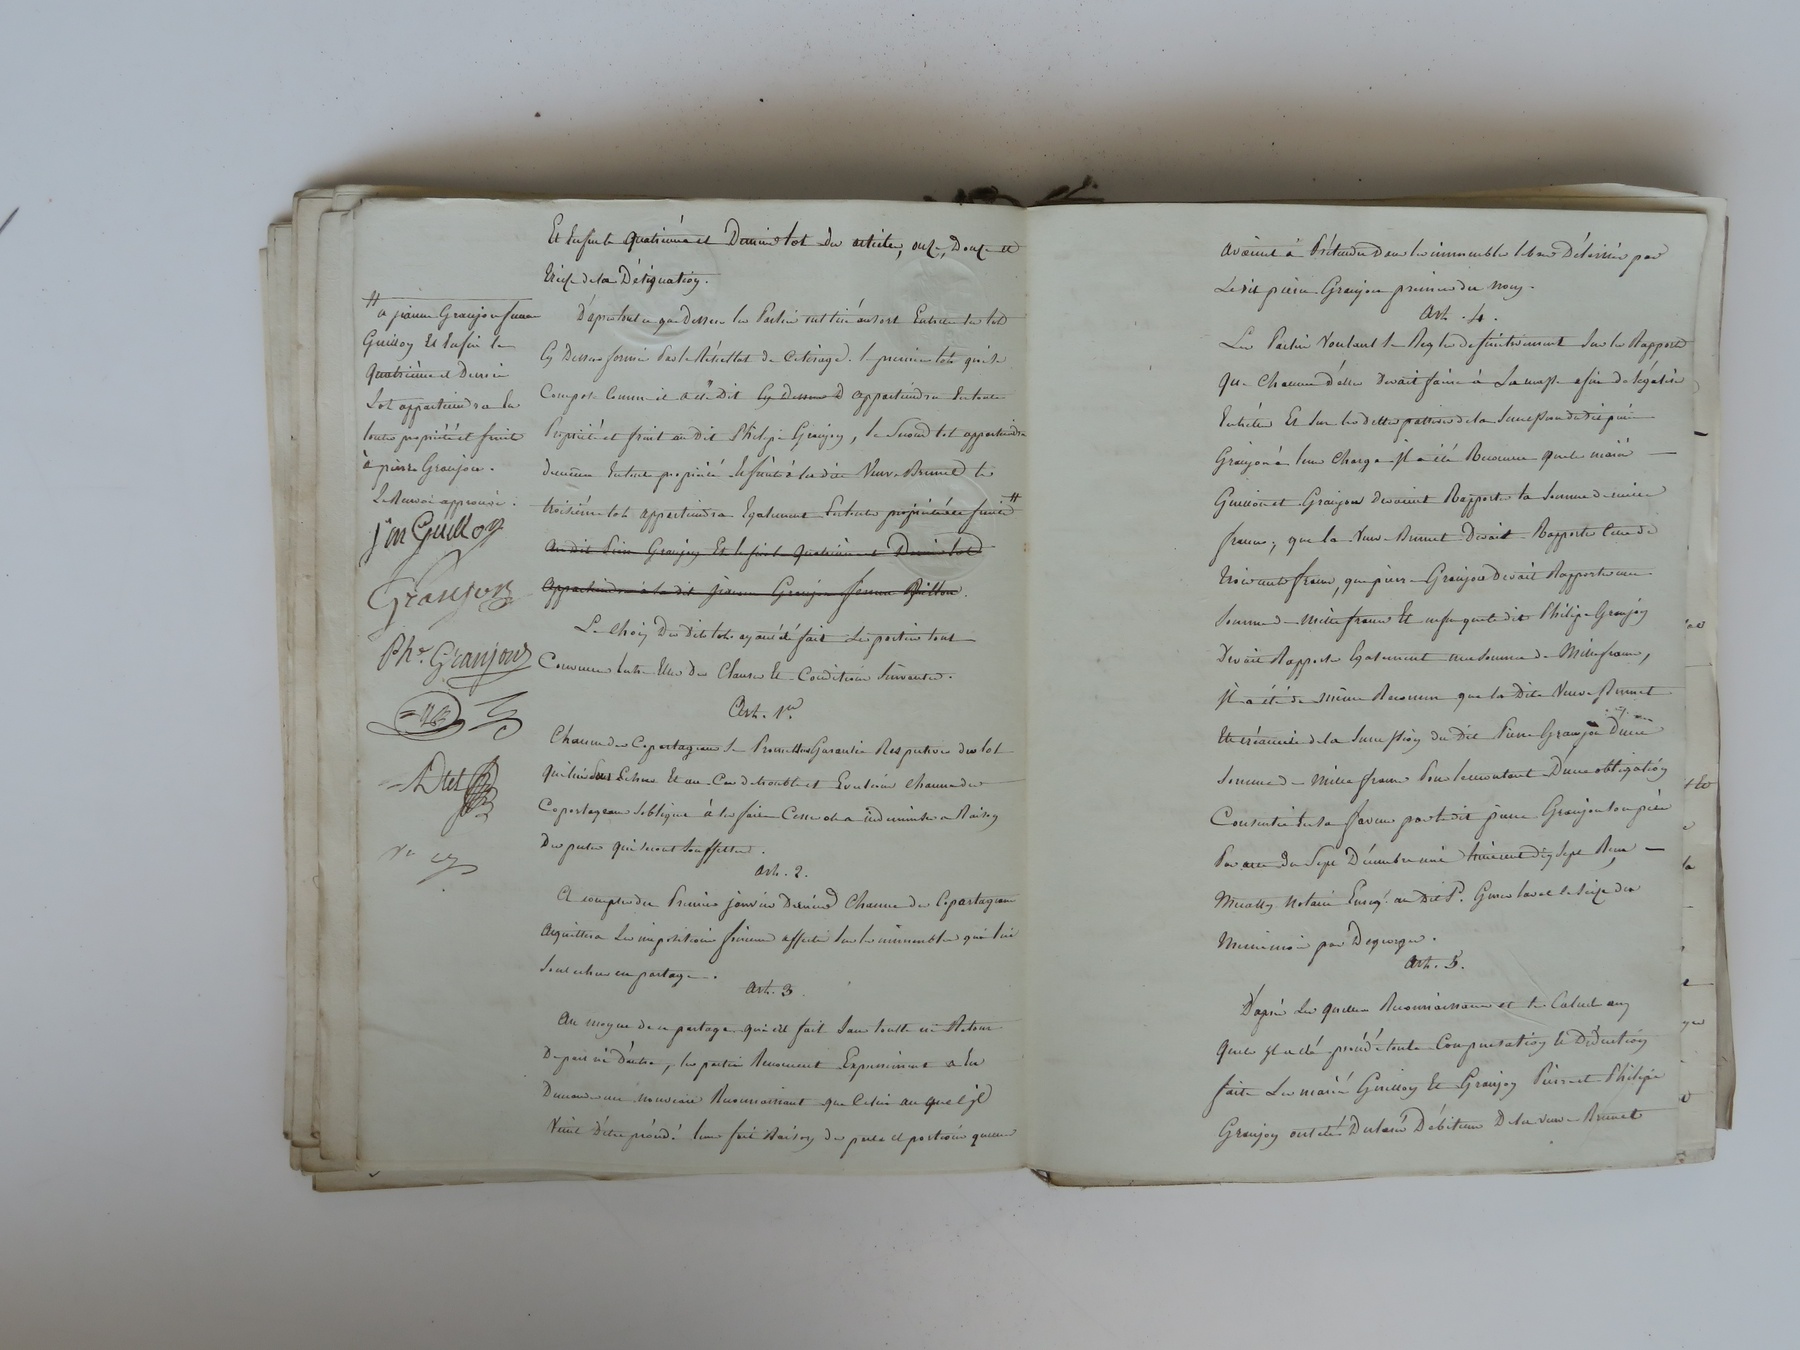 Et Enfin le quatrième et Dernier lot des articles, onze, Douze et
treize de la Désignation.
D'après tout ce que Dessus les Parties ont tiré au sort Entre les lots
Cy Dessus formés Par le Résultat de Ce tirage. le premier lot qui se
Compose Comme il a été Dit Cy Dessus appartiendra En toute
Propriété et fruit au Dit Philipe Granjon, le Second lot appartiendra
de même En toute propriété Et fruit à la dite Veuve Brunet le
troisième lot appartiendra Egalement En toute propriété et fruit #
Au dit Pierre Granjon Et Enfin le quatrième et Dernier lot
appartiendra à la dite jeanne Granjon femme Guillon.
Le Choix Des Dits lots ayant été fait les parties sont
Convenues Entre Elles Des Clauses Et Conditions Suivantes.
Art. 1er
Chacun des Copartageans Se Promettent Garantie Respective des lots
qui leur Sont Echus Et au Cas de trouble et Eviction Chacun des
Copartageans S'oblige à les faire Cesser ou a indemniser a Raison
Des pertes qui Seront Souffertes.
Art. 2.
A compter du Premier janvier Dernier Chacun des Copartageans
acquittera les impositions foncieres affectées Sur les immeubles qui lui
Sont échus en partage.
Art. 3
Au moyen de ce partage qui est fait Sans Soulte ni Retour
De part ni D'autre, les parties Renoncent Expressément a En
Demander un nouveau Reconnaissant que Celui au quel il
Vient D'être procédé leur fait Raison des parts et portions qu'elles
# a jeanne Granjon femme
Guillon Et Enfin le
Quatrième et Dernier
Lot appartiendra En
toute propriété et fruit
à pierre Granjon.
Le Renvoi approuvé.
Guillon
Granjon
Phe. Granjon
avaient à Prétendre Dans les immeubles Délaissés par
Le dit pierre Granjon premier du nom.
Art. 4.
Les Parties Voulant Se Regler définitivement Sur les Rapports
que Chacune d'elles Devait faire à La masse afin de l'égalité
Entr'elles Et Sur les dettes passives de la Succession du dit pierre
Granjon à leur Charge il a été Reconnu que les mariés
Guillon et Granjon devaient Rapporter la Somme de mille
francs, que la Veuve Brunet Devait Rapporter Celle de
trois cents francs, que pierre Granjon Devait Rapporter une
Somme de mille francs Et enfin que le dit Philipe Granjon
Devait Rapporter Egalement une Somme de Mille francs,
il a été de même Reconnu que la Dite Veuve Brunet
Est créancière de la Succession du Dit Pierre Granjon D'une
Somme de mille francs Pour le montant D'une obligation
Consentie En Sa faveur par le dit pierre Granjon Son père
Par acte du Sept Décembre mil huit cent dix Sept Reçu
notaire Enreg. au Dit le Seize du
Même mois par Degeorges.
Art. 5.
D'après Les quelles Reconnaissances et le Calcul au
quel il a été procédé toute Compensation Et Déduction
faite Les mariés Guillon Et Granjon Pierre et Philipe
Granjon ont été Déclarés Débiteurs De la veuve Brunet